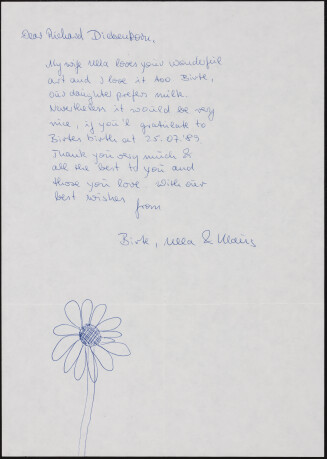 Dear Richard Diebenkorn,
My wife Ulla loves your wonderful
art and I love it too. Birte,
our daughter prefers milk.
Nevertheless it would be very
nice, if you'll gratulate to
Birtes birth at 25.07.'89
Thank you very much &
all the best to you and
those you love. With our
best wishes
from
Birte, Ulla & Klaus